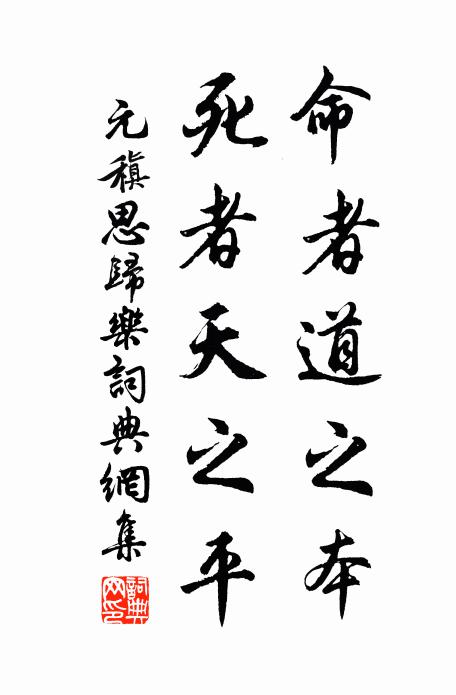 命者道之本
死者天之平
元稹思歸樂詞典網集
詞典網印